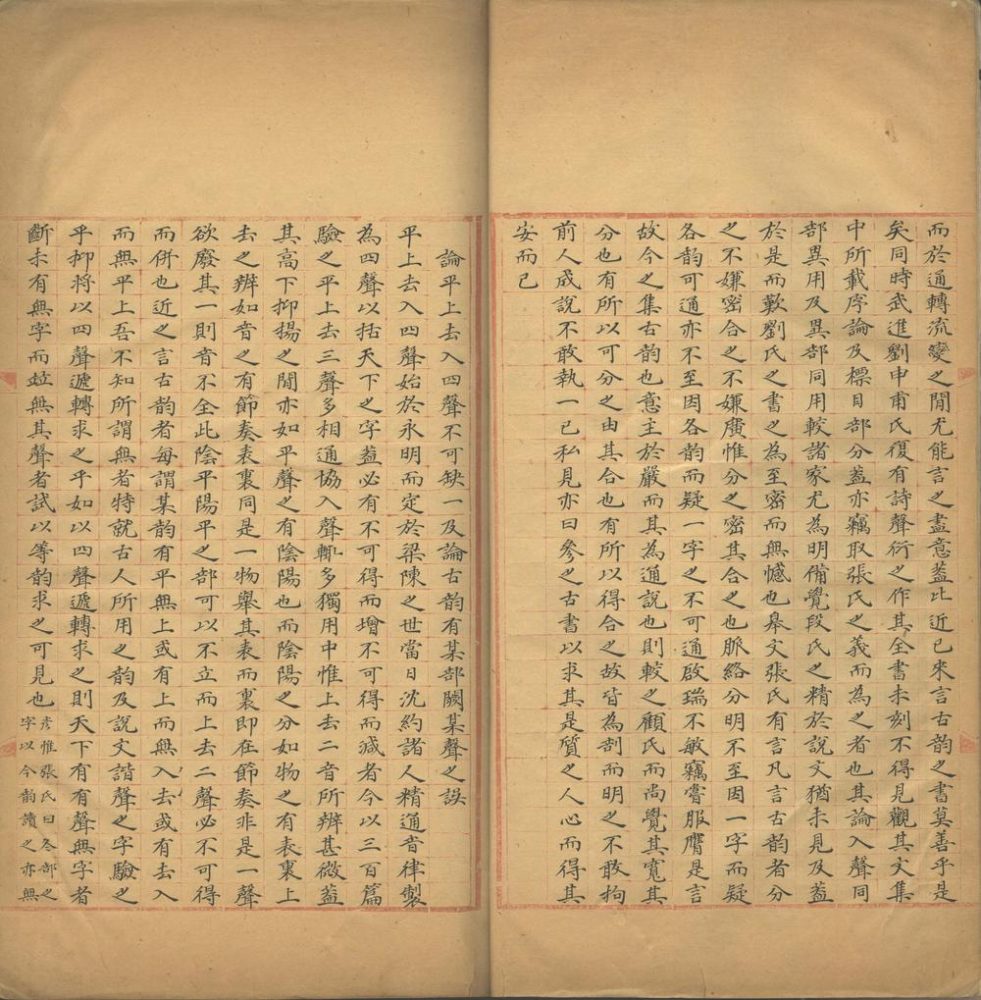 而於通轉流變之閒尤能言之盡意葢比近已來言古韵之書莫善乎是
矣同時武進劉申甫氏復有詩聲衍之作其全書未刻不得見觀其文集
中所載序論及標目部分葢亦竊取張氏之義而為之者也其論入聲同
部異用及異部同用較諸家尤為明備覺段氏之精於說文猶未見及葢
於是而歎劉氏之書之為至密而無憾也皋文張氏有言凡言古韵者分
之不嫌密合之不嫌廣惟分之密其合之也脈絡分明不至因一字而疑
各韵可通亦不至因各韵而疑一字之不可通啟瑞不敏竊嘗服膺是言
故今之集古韵也意主於嚴而其為通說也則較之顧氏而尚覺其寬其
分也有所以可分之由其合也有所以得合之故皆為剖而明之不敢拘
前人成說不敢執一已私見亦曰參之古書以求其是質之人心而得其
安而已
論平上去入四聲不可缺一及論古韵有某部闕某聲之誤
平上去入四聲始於永明而定於梁陳之世當日沈約諸人精通音律製
為四聲以括天下之字葢必有不可得而增不可得而減者今以三百篇
驗之平上去三聲多相通協入聲輒多獨用中惟上去二音所辨甚微葢
其高下抑揚之閒亦如平聲之有陰陽也而陰陽之分如物之有表裏上
去之辨如音之有節奏表裏同是一物舉其表而裏即在節奏非是一聲
欲廢其一則音不全此陰平陽平之部可以不立而上去二聲必不可得
而併也近之言古韵者每謂某韵有平無上或有上而無入去或有去入
而無平上吾不知所謂無者特就古人所用之韵及說文諧聲之字驗之
乎抑將以四聲遞轉求之乎如以四聲遞轉求之則天下有有聲無字者
斷未有無字而竝無其聲者試以等韵求之可見也彥惟張氏曰冬部之
字以今韵讀之亦無